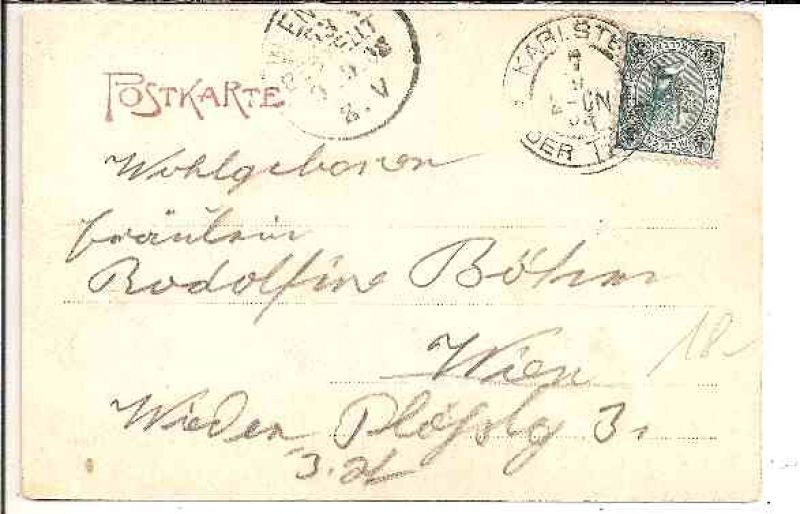 POSTKARTE
KARLSTE
DER T
Wohlgeboren
Fräulein
Rodolfine Böhm
Wien
18
Wieden Plößlg 3.
3. St